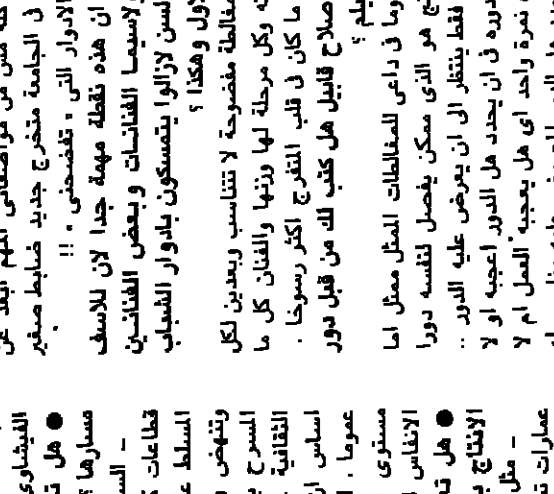 مش من مواصفاتى المهم ابعد عن
فى الجامعة متخرج جديد ضابط صغير
الادوار التى « تفضحنى » !!
ان هذه نقطة مهمة جدا لان للاسف
لاسيما الفنانات وبعض الفنانين
السن لازالوا يتمسكون بادوار الشباب
الاول وهكذا ؟
مغالطة مفضوحة لا تتناسب وبعدين لكل
وكل مرحلة لها وزنها والفنان كل ما
ما كان فى قلب المتفرج اكثر رسوخا .
صلاح قابيل هل كتب لك من قبل دور
وما فى داعى للمغالطات الممثل ممثل اما
هو الذى ممكن يفصل لنفسه دورا
فقط ينتظر الى ان يعرض عليه الدور ..
دوره فى ان يحدد هل الدور اعجبه او لا
نمرة واحد اى هل يعجبه العمل ام لا
الفيشاوى
● هل
مسارها ؟
قطاعات
وتنهض
المسرح
الثقافية
اساس
عموما .
مستوى
الانفاس
● هل
الانتاج
- مثل
عمارات